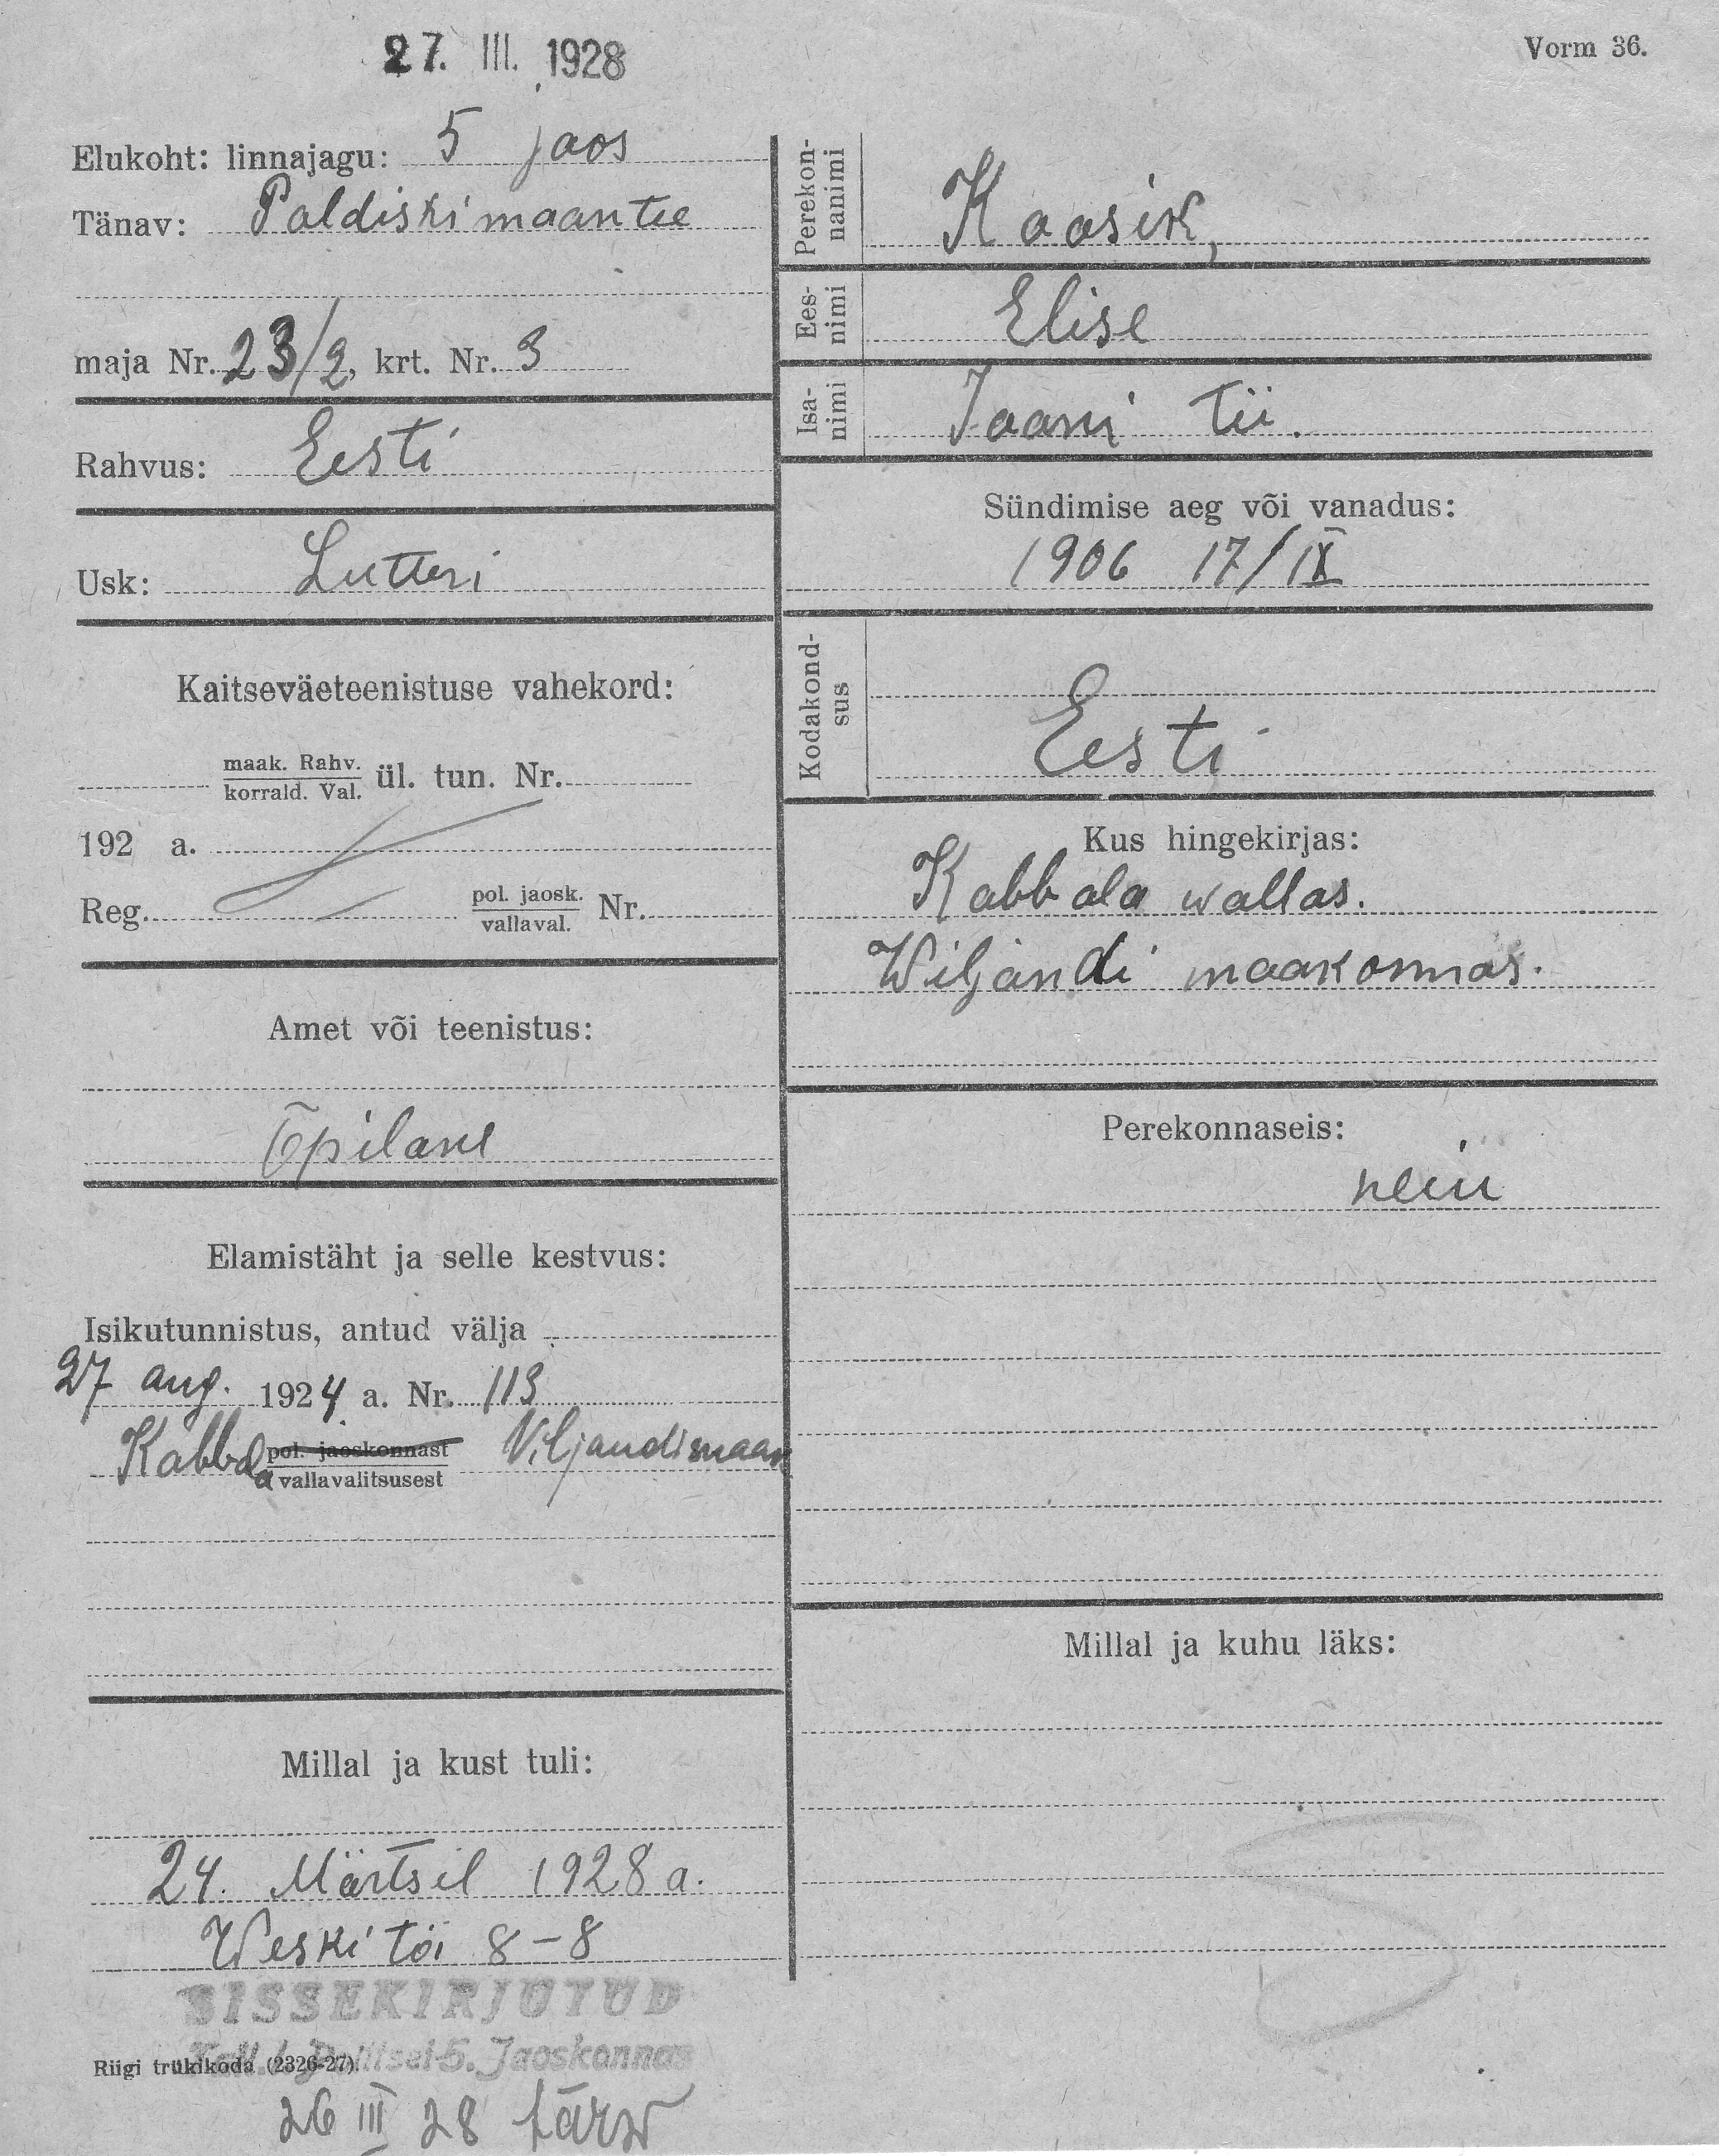 27. III. 1928
Vorm 36.
Elukoht: linnajagu: 5 jaos
Tänav: Paldiski maantee
maja Nr. 23/2, krt. Nr. 3
Rahvus: Eesti
Usk: Lutteri
Kaitseväeteenistuse vahekord:
maak. Rahv.
korrald. Val. ül. tun. Nr.
192 a.
Reg. pol. jaosk. Nr.
vallaval.
Amet või teenistus:
Õpilane
Elamistäht ja selle kestvus:
Isikutunnistus, antud välja
27 aug. 1924 a. Nr. 113
Kabbala pol. jaoskonnast Viljandimaan
vallavalitsusest
Millal ja kust tuli:
24. Märtsil 1928 a.
Weski töi 8-8
SISSEKIRJUTUD
Tall. Politsei 5. Jaoskonnas
Riigi trükikoda (2326-27).
26 III 28
Perekon-
nanimi
Kaasik,
Ees-
nimi
Elise
Isa-
nimi
Jaani tü.
Sündimise aeg või vanadus:
1906 17/IX
Kodakond-
sus
Eesti
Kus hingekirjas:
Kabbala wallas.
Wiljandi maakonnas.
Perekonnaseis:
neiu
Millal ja kuhu läks: